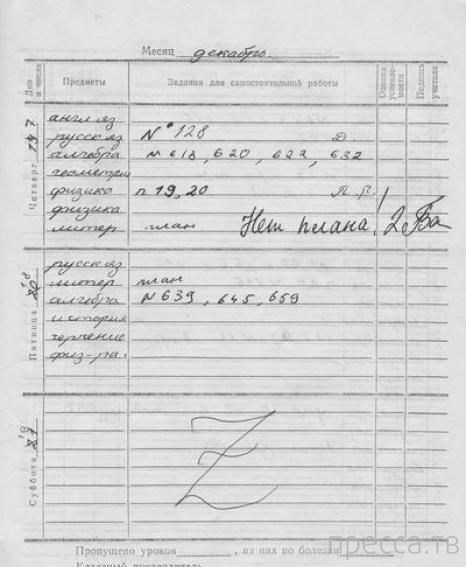 Месяц декабрь.
Дни и числа
Предметы
Задания для самостоятельной работы
Оценка успеваемости
Подпись учителя
Четверг
англ яз
русск яз N° 128 Д
алгебра N 618, 620, 622, 632
геометрия
физика п 19, 20 П. р.
физика
литер план Нет плана! 2
Пятница
русск яз
литер план
алгебра N 639, 645, 659
история
черчение
физ-ра.
Суббота
Z
Пропущено уроков , из них по болезни
Классный руководитель
пресса.тв